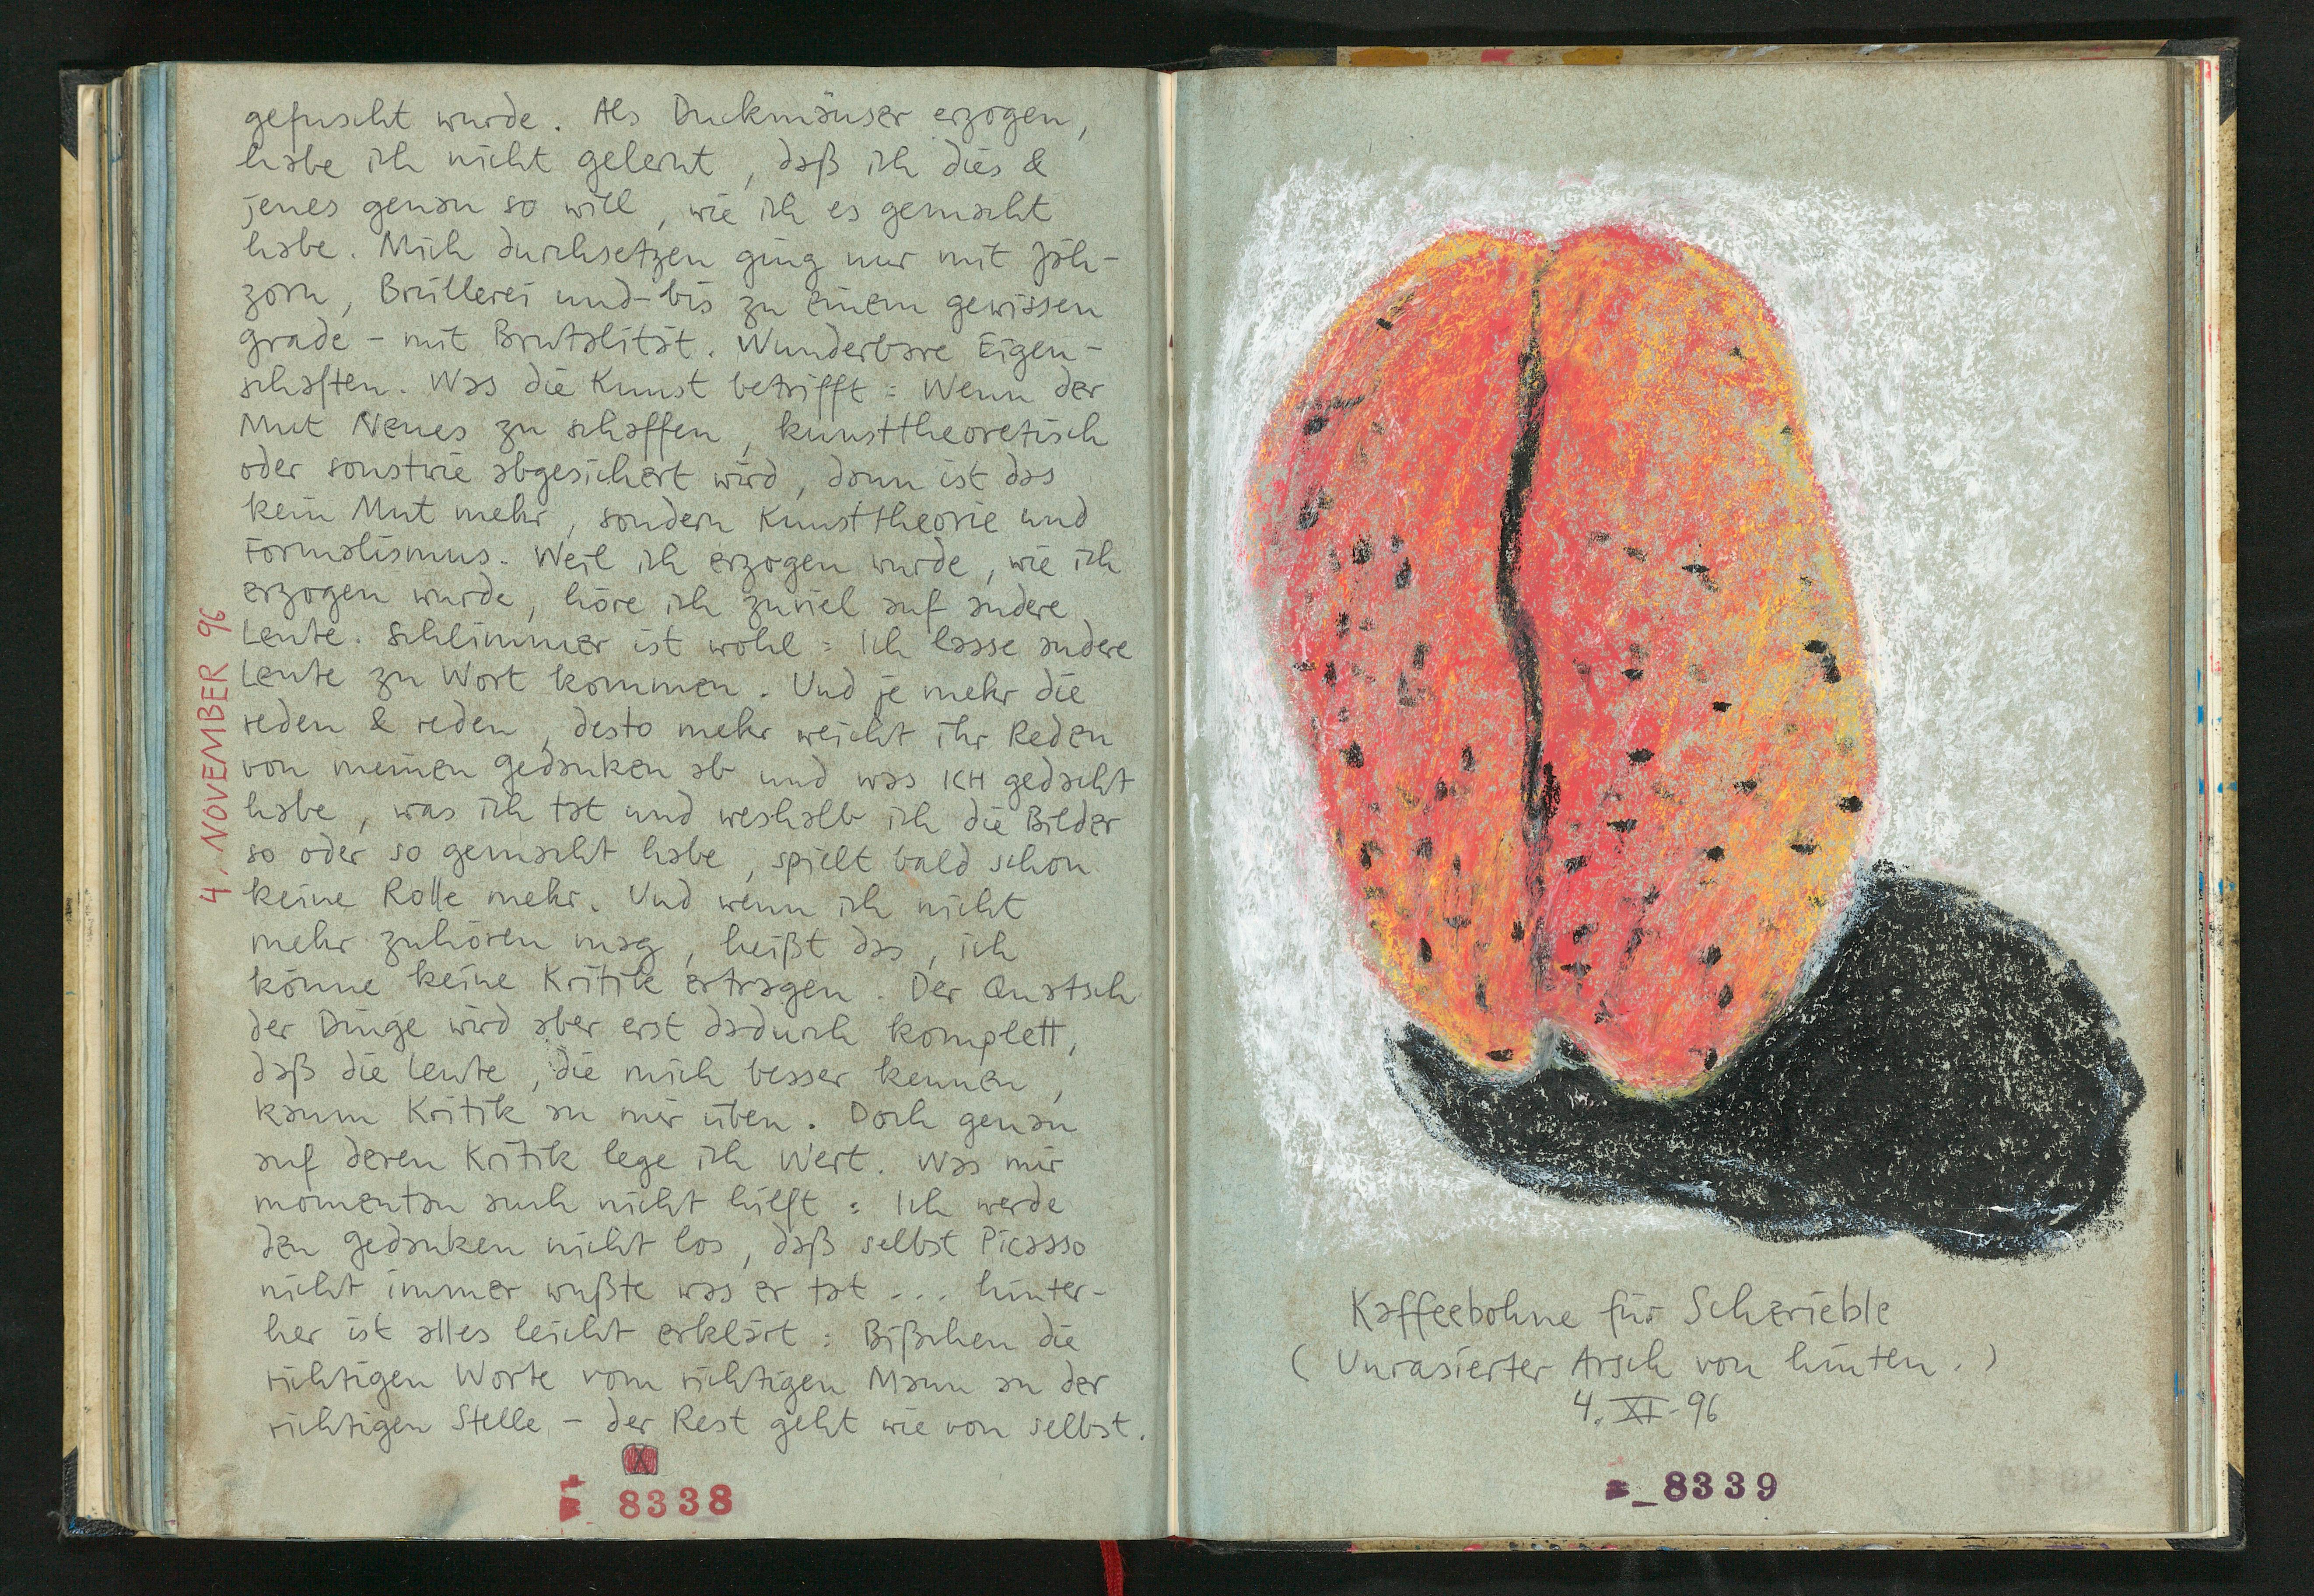 gefuscht wurde. Als Duckmäuser erzogen,
habe ich nicht gelernt, daß ich dies &
jenes genau so will, wie ich es gemacht
habe. Mich durchsetzen ging nur mit Jäh-
zorn, Brüllerei und - bis zu einem gewissen
grade - mit Brutalität. Wunderbare Eigen-
schaften. Was die Kunst betrifft: Wenn der
Mut Neues zu schaffen, kunsttheoretisch
oder sonstwie abgesichert wird, dann ist das
kein Mut mehr, sondern Kunsttheorie und
Formalismus. Weil ich erzogen wurde, wie ich
erzogen wurde, höre ich zuviel auf andere
Leute. Schlimmer ist wohl: Ich lasse andere
Leute zu Wort kommen. Und je mehr die
reden & reden, desto mehr weicht ihr Reden
von meinen gedanken ab und was ICH gedacht
habe, was ich tat und weshalb ich die Bilder
so oder so gemacht habe, spielt bald schon
keine Rolle mehr. Und wenn ich nicht
mehr zuhören mag, heißt das, ich
könne keine Kritik ertragen. Der Quatsch
der Dinge wird aber erst dadurch komplett,
daß die Leute, die mich besser kennen,
kaum Kritik an mir üben. Doch genau
auf deren Kritik lege ich Wert. Was mir
momentan auch nicht hilft: Ich werde
den gedanken nicht los, daß selbst Picasso
nicht immer wußte was er tat ... hinter-
her ist alles leicht erklärt: Bißchen die
richtigen Worte vom richtigen Mann an der
richtigen Stelle - der Rest geht wie von selbst.
4. NOVEMBER 96
8338
Kaffeebohne für Scherieble
(Unrasierter Arsch von hinten.)
4. XI. 96
8339